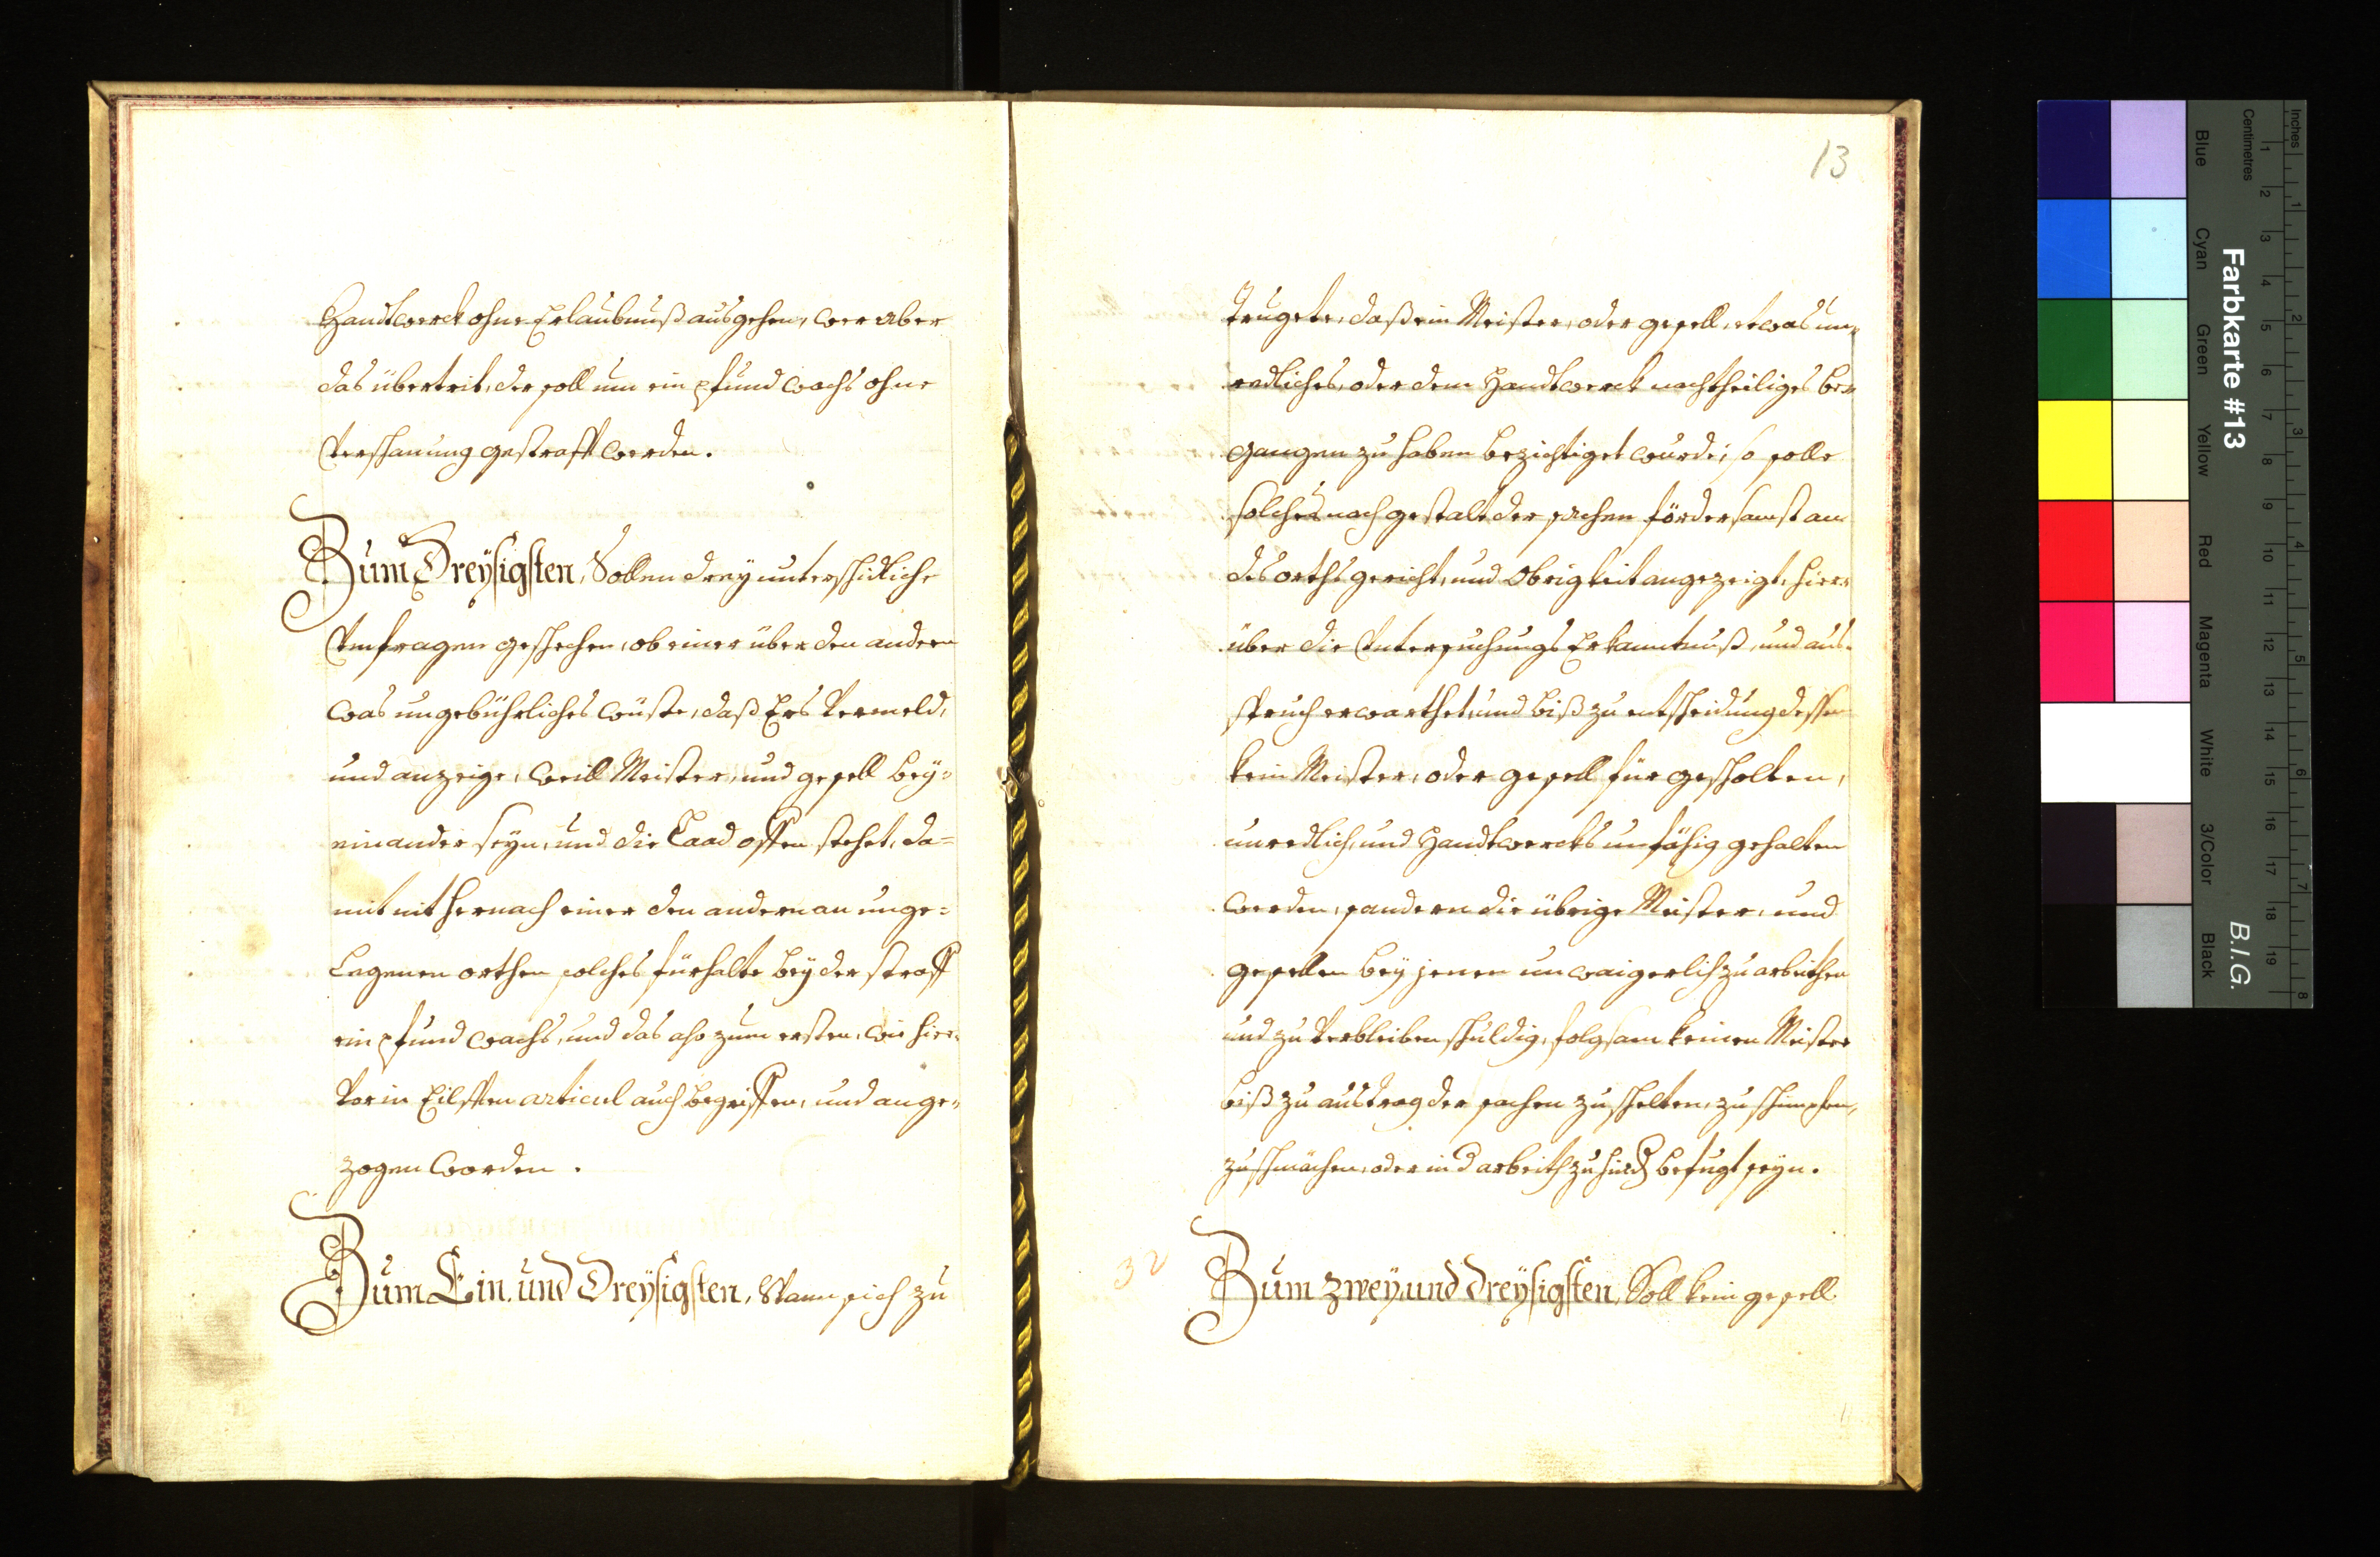 Handtwerck ohne Erlaubnuß ausgehen, wer aber
das übertrit, der soll um ein pfund wachs ohne
Verschanung gestrafft werden.
Zum Dreysigsten, Sollen drey unterschidliche
Umfragen geschechen, ob einer über den andern
was ungebührliches wüste, daß Ers Vermeld,
und anzeige, weill Meister, und gesell bey=
einander seyn, und die Laad offen stehet, da=
mit nit hernach einer den andern an unge=
Legenen orthen solches fürhalte bey der straff
ein pfund wachs, und das also zum ersten, wie hier=
Vor in Eilfften articul auch begriffen, und ange=
zogen worden.
Zum Ein. und Dreysigsten, Wann sich zu
13
Trugete, daß ein Meister, oder gesell, etwas un=
redliches, oder dem Handtwerck nachtheiliges be=
gangen zu haben bezichtiget wurde; so solle
solches nach gestalt der sachen fördersamst an
des orths gericht, und Obrigkeit angezeigt, hier=
über die Untersuchungs Erkanntnuß, und aus=
spruch erwarthet, und biß zu entscheidung dessen
kein Meister, oder gesell für gescholten,
unredlich, und Handtwercks unfähig gehalten
werden, sondern die übrige Meister, und
gesellen bey jenen unwaigerlich zu arbeithen
und zu Verbleiben schuldig, folgsam keinen Meister
biß zu austrag der sachen zu schelten, zu schimpfen,
zu schmächen, oder in d arbeith zu hind befugt seyn.
32
Zum zwey und dreysigsten, Soll kein gesell
Inches
Centimetres
1 2 3 4 5 6 7 8 9 10 11 12 13 14 15 16 17 18 19
1 2 3 4 5 6 7 8
Farbkarte #13
B.I.G.
Blue
Cyan
Green
Yellow
Red
Magenta
White
3/Color
Black